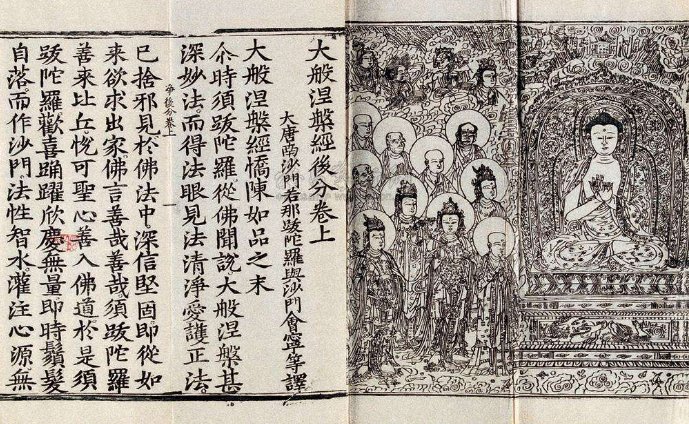 大般涅槃經後分卷上
大唐南沙門若那跋陀羅與沙門會寧等譯
大般涅槃經憍陳如品之末
尒時須跋陀羅從佛聞說大般涅槃甚
深妙法而得法眼見法清淨愛護正法。
後分卷上 一
已捨邪見於佛法中深信堅固即從如
來欲求出家。佛言善哉善哉須跋陀羅
善來比丘。悅可聖心善入佛道。於是須
跋陀羅歡喜踊躍欣慶無量即時鬚髮
自落而作沙門。法性智水灌注心源無